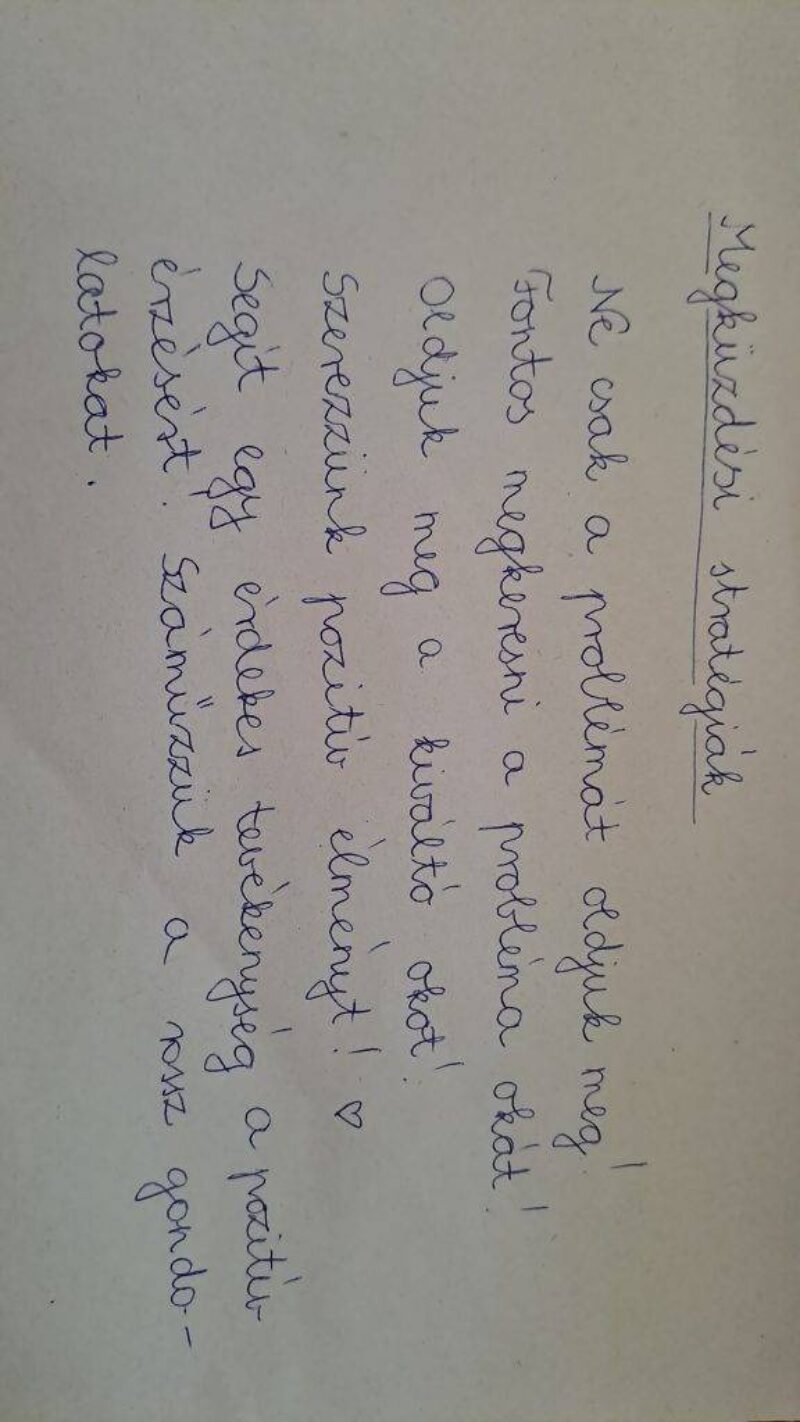 Megküzdési stratégiák
Ne csak a problémát oldjuk meg!
Fontos megkeresni a probléma okát!
Oldjuk meg a kiváltó okot!
Szerezzünk pozitív élményt! ♡
Segít egy érdekes tevékenység a pozitív
érzésért! Száműzzük a rossz gondo-
latokat.